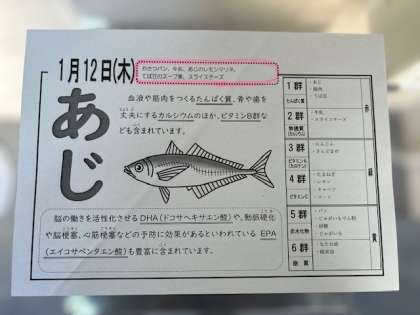 1月12日(木)
おさつパン、牛乳、あじのレモンマリネ、
てぼ豆のスープ煮、スライスチーズ
あじ
血液や筋肉をつくるたんぱく質、骨や歯を
丈夫にするカルシウムのほか、ビタミンB群な
ども含まれています。
脳の働きを活性化させるDHA(ドコサヘキサエン酸)や、動脈硬化
や脳梗塞、心筋梗塞などの予防に効果があるといわれている EPA
(エイコサペンタエン酸)も豊富に含まれています。
1群
たんぱく質
・あじ
・豚肉
・てぼ豆
2群
無機質
(カルシウム)
・牛乳
・スライスチーズ
3群
ビタミンA
(カロテン)
・にんじん
・さんどまめ
4群
ビタミンC
・たまねぎ
・レモン
・キャベツ
・コーン
5群
炭水化物
・パン
・じゃがいもでん粉
・砂糖
・じゃがいも
6群
脂質
・なたね油
・綿実油
赤
緑
黄